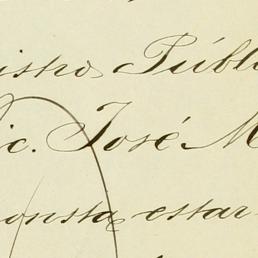 istro Públi
ic. José M
onsta estar